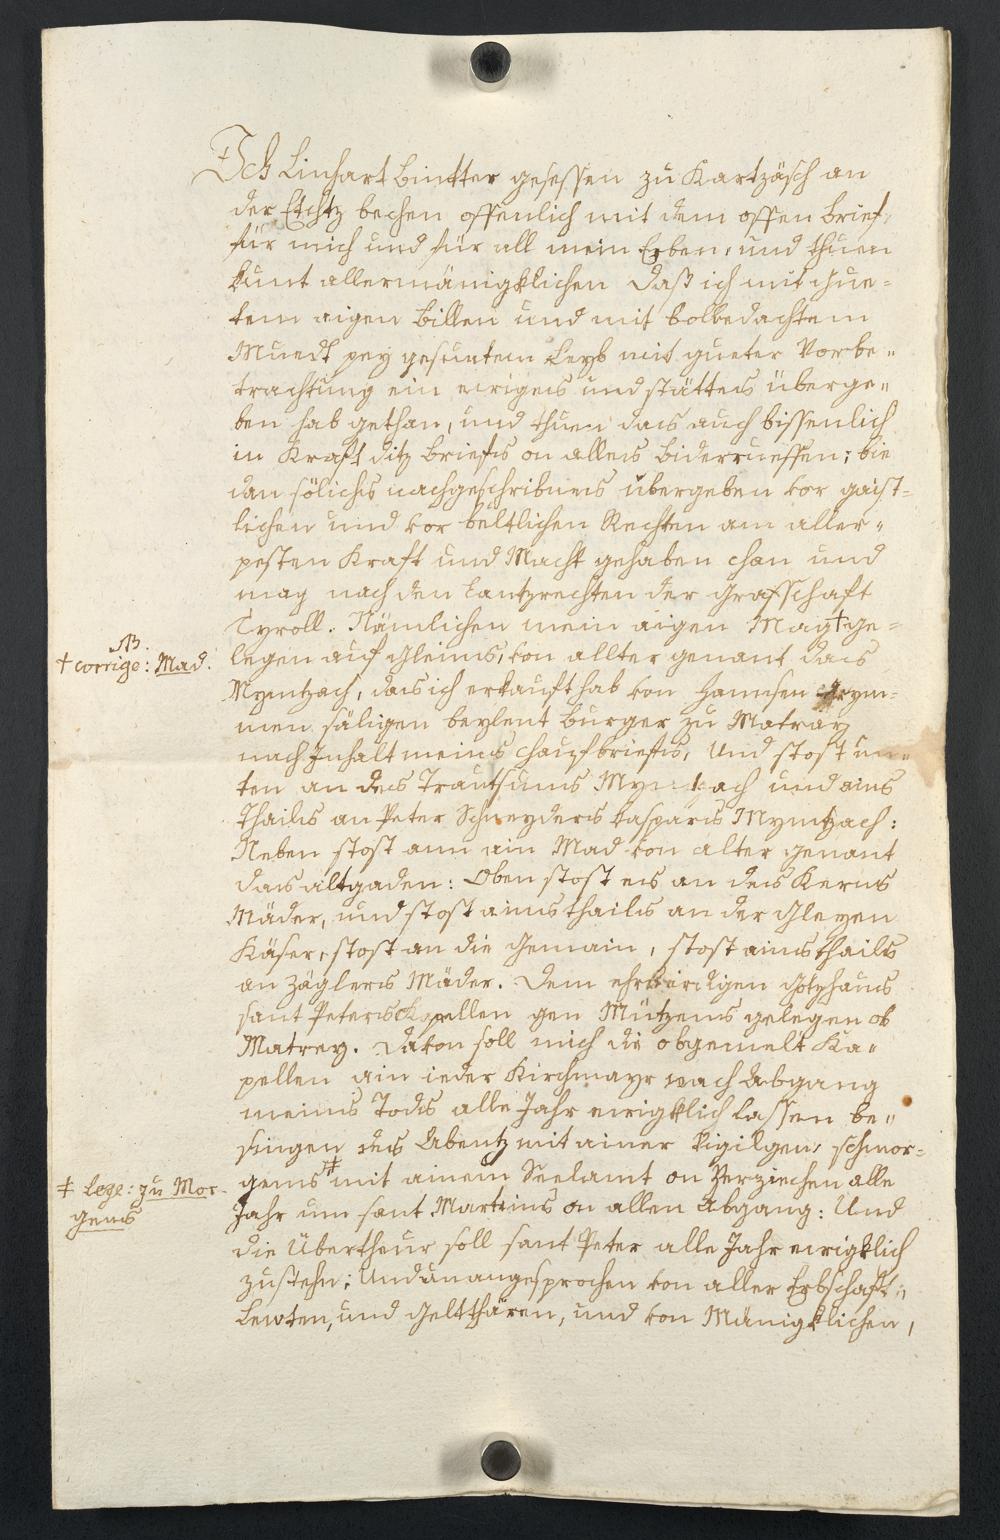 Ich Linhart Bintter gesessen zu Kartzäsch an
der Etchtz bechen offenlich mit dem offen brief,
für mich und für all mein Erben, und thuen
kunt allermänigklichen Daß ich mit chue=
tem aigen Billen und mit bolbedachtem
Muedt pey gesuntem Leyb mit gueter Vorbe„
trachtung ein ewigeis und stätteis überge„
ben hab gethan, und thuen dais auch bissenlich
in Kraft ditz briefis on alleis Biderrueffen; bie
dan sölichs nachgeschribneis übergeben vor gaist=
lichen und vor beltlichen Rechten am aller„
pesten Kraft und Macht gehaben chan und
mag nach den Lantzrechten der Grafschaft
Tyroll. Nämlichen mein aigen Mag† ge=
legen auf Gleins, von allter genant dais
Myntzach, dais ich erkauft hab von Hannsen
men säligen beylent burger zu Matray
nach Inhalt meins chaufbriefis, Und stost un„
ten an deis Trautsuns und ains
thailis an Peter Schneyderis Casparis Myntzach:
Neben stost ann ain Mad von alter genant
dais altgaden: Oben stost eis an deis Kerns
Mäder, und stost ains thailis an der Gleyen
Käser, stost an die Gemain, stost ains thails
an Zägleris Mäder. Dem ehrbirdigen Gotzhaus
sant Peteris Kapellen gen Mützens gelegen ob
Matrey. Davon soll mich die obgemelt Ka„
pellen ain ieder Kirchmayr nach Abgang
meins Todis alle Jahr ewigklich lassen be„
singen deis Abentz mit ainer Vigilgen, schmor=
gens ‡ mit ainem Seelamt on Verziechen alle
Jahr um sant Martins on allen Abgang: Und
die Übertheur soll sant Peter alle Jahr ewigklich
zustehn; Und unangesprochen von aller Erbschaft„
Lewten, und Geltthären, und von Mänigklichen,
NB.
† corrige: Mad.
‡ Lege: zu Mor-
gens